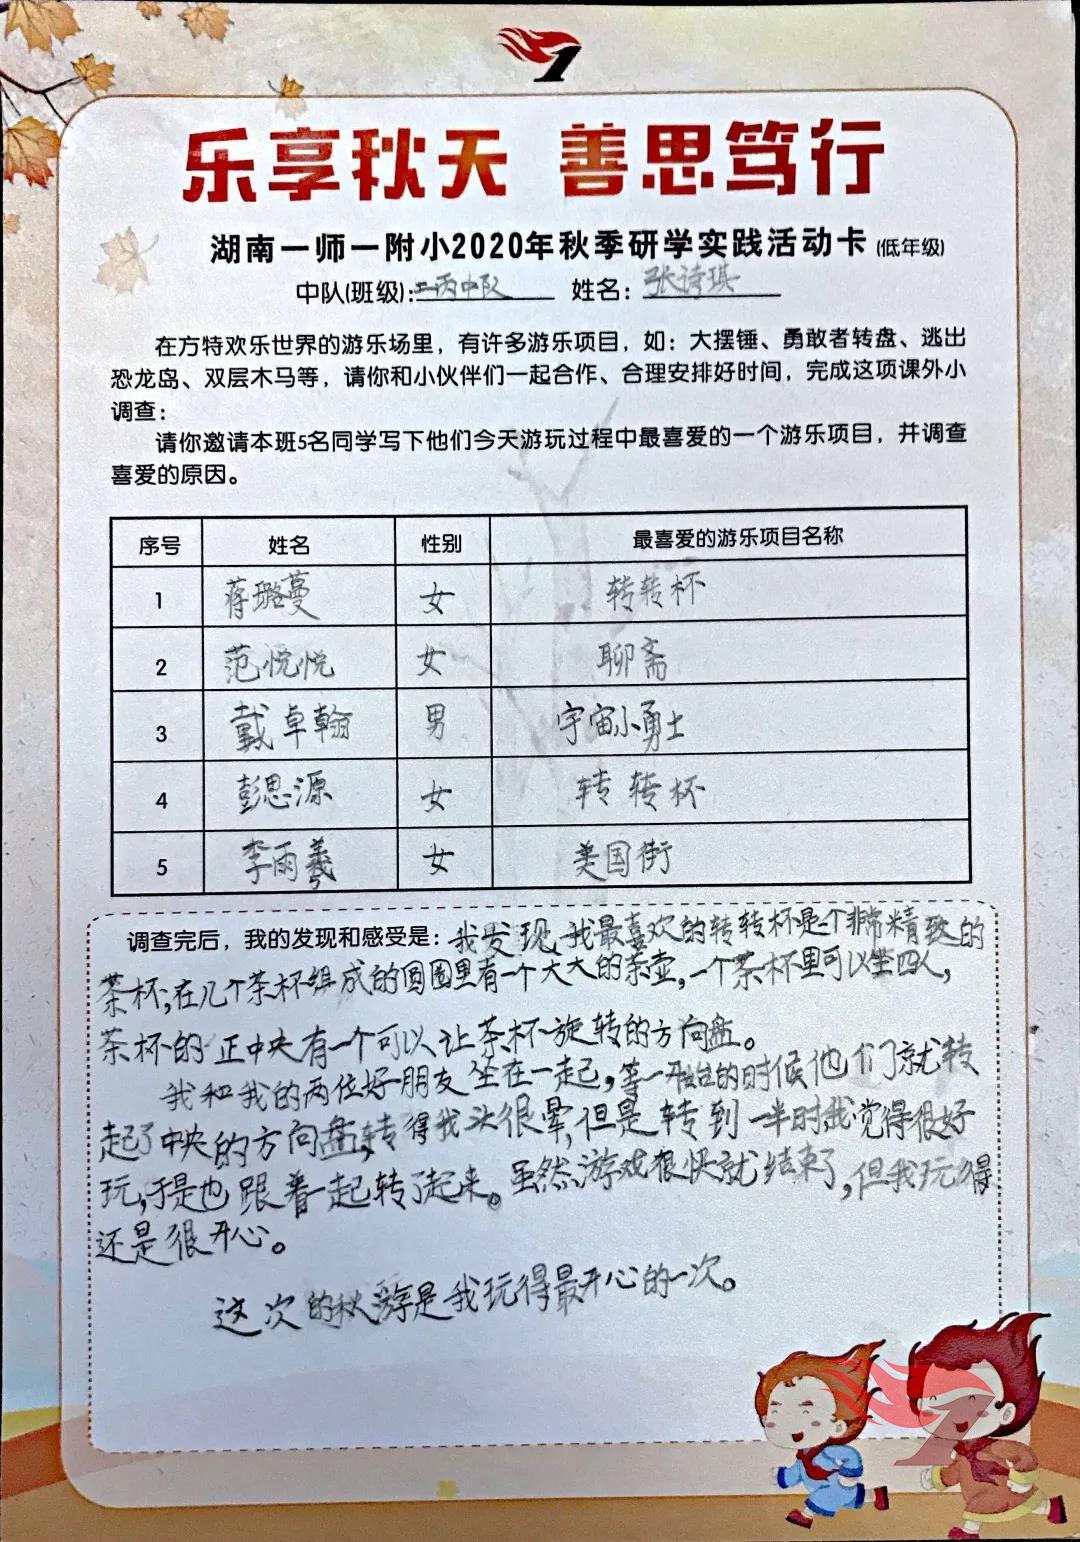 乐享秋天 善思笃行
湖南一师一附小2020年秋季研学实践活动卡(低年级)
中队(班级):二丙中队 姓名:张诗琪
在方特欢乐世界的游乐场里，有许多游乐项目，如：大摆锤、勇敢者转盘、逃出
恐龙岛、双层木马等，请你和小伙伴们一起合作、合理安排好时间，完成这项课外小
调查：
请你邀请本班5名同学写下他们今天游玩过程中最喜爱的一个游乐项目，并调查
喜爱的原因。
序号 姓名 性别 最喜爱的游乐项目名称
1 蒋璐蔓 女 转转杯
2 范悦悦 女 聊斋
3 戴卓翰 男 宇宙小勇士
4 彭思源 女 转转杯
5 李雨羲 女 美国街
调查完后，我的发现和感受是：我发现,我最喜欢的转转杯是个非常精致的
茶杯,在几个茶杯组成的圆圈里有一个大大的茶壶,一个茶杯里可以坐四人,
茶杯的正中央有一个可以让茶杯旋转的方向盘。
我和我的两位好朋友坐在一起,等一开始的时候他们就转
起了中央的方向盘,转得我头很晕,但是转到一半时我觉得很好
玩,于是也跟着一起转了起来。虽然游戏很快就结束了,但我玩得
还是很开心。
这次的秋游是我玩得最开心的一次。